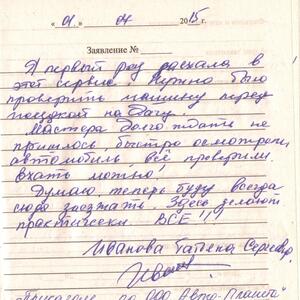 « 01 » 04 2015 г.
Заявление №
Я первый раз заехала в
этот сервис. Нужно было
проверить машину перед
поездкой на дачу.
Мастера долго ждать не
пришлось, быстро осмотрели
автомобиль, всё проверили.
Ехать можно!
Думаю теперь буду всегда
сюда заезжать. Здесь делают
практически ВСЕ!!!
Иванова Татьяна
по ООО Авто-Планета"